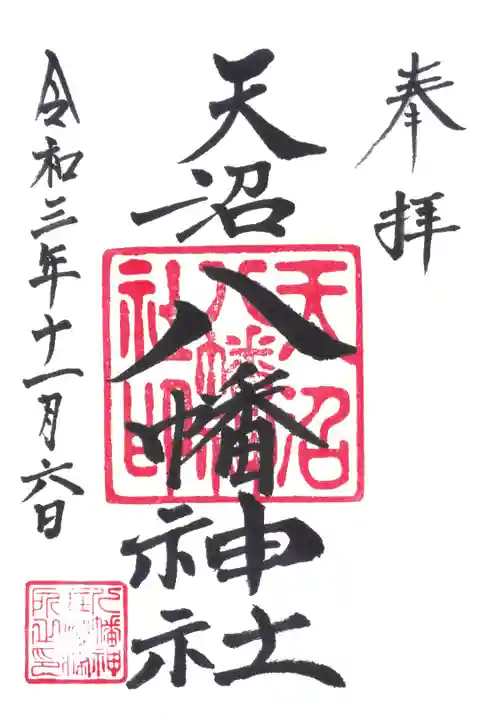 奉拝
天沼八幡神社
天沼八幡神社印
令和三年十一月六日